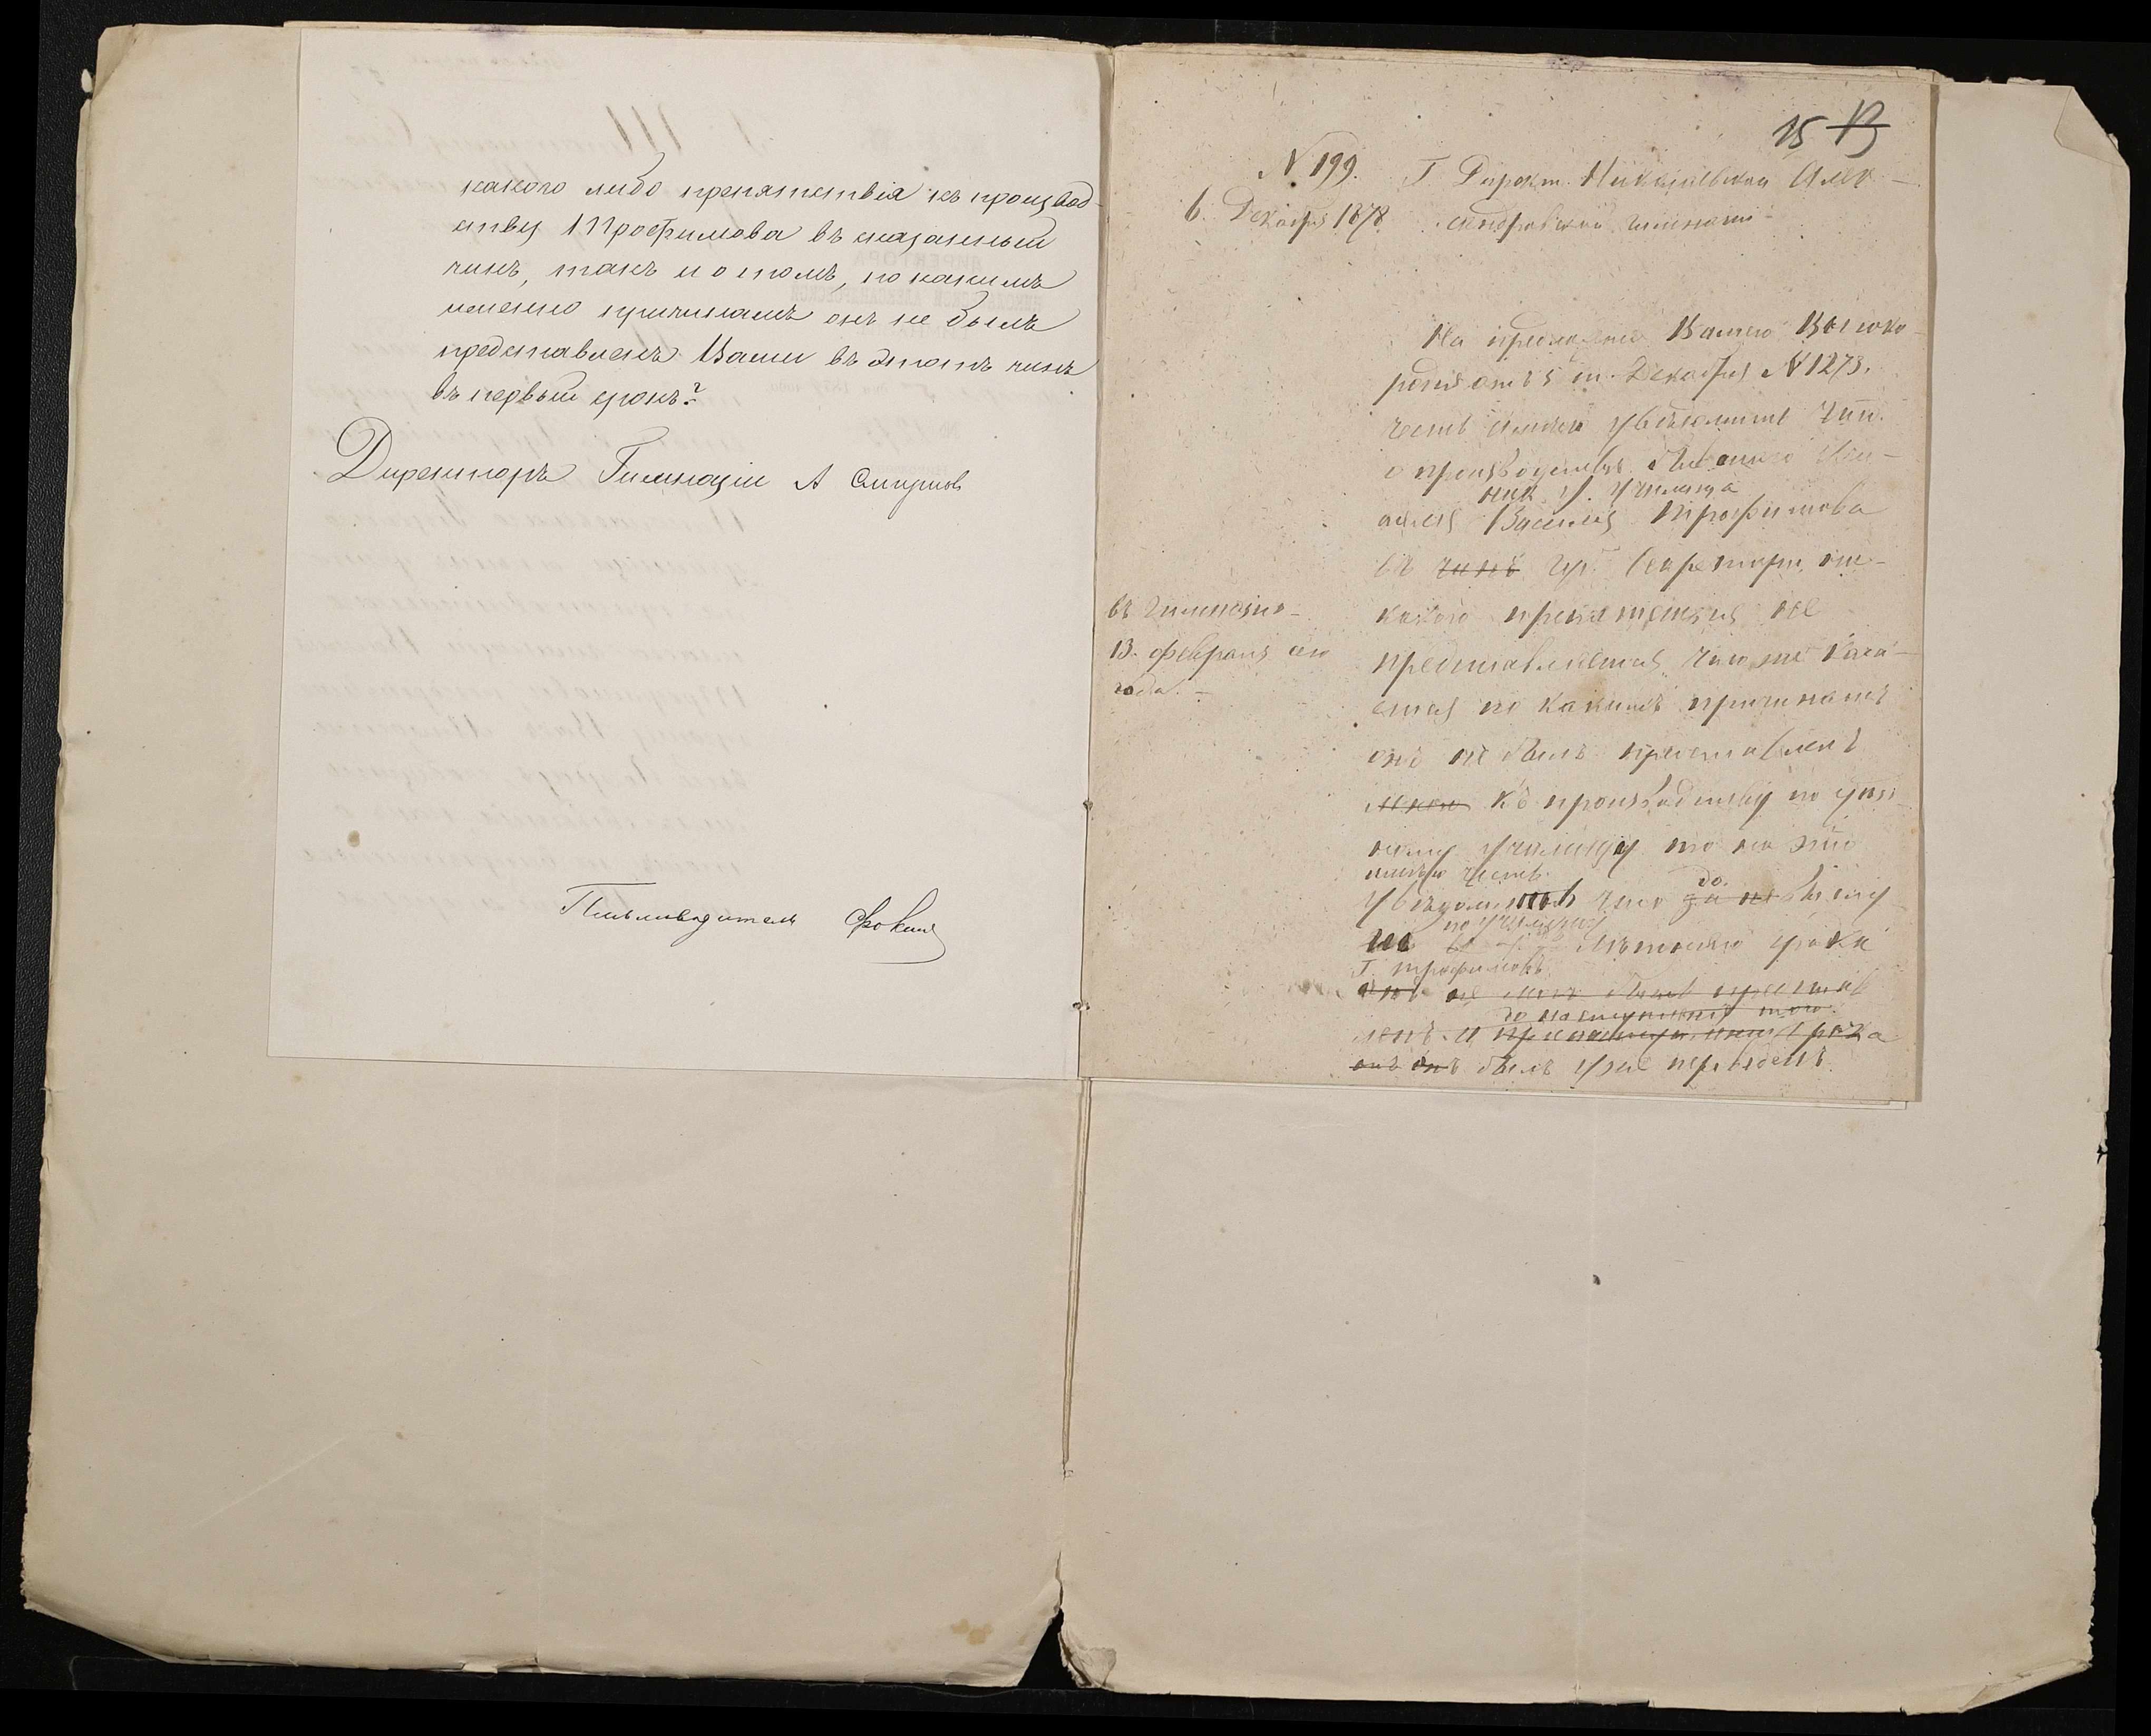 какого либо препятствія къ производ-
ству Трофимова въ сказанный
чинъ, такъ и о томъ, по какимъ
именно причинамъ онъ не былъ
представленъ Вами въ этотъ чинъ
въ первый срокъ?
Директоръ Гимназіи А Смирнов
Письмоводитель Фокин
15 13
N 199.
6. Декабря 1878
Г Директ. Николаевской Алек-
сандровской гимназіи
На предложеніе Вашего Высоко-
родія отъ 5 Декабря N 1273.
честь имѣю увѣдомить что
о производствѣ бывшаго
училища
Василія Трофимова
въ чинъ Секретари ни-
какого препятствія не
представляется, что же каса-
ется по какимъ причинамъ
онъ не былъ представленъ
мною къ производству по
училищу то на это
имѣю честь
увѣдомить что до
по училищу
лѣтняго срока
Г. Трофимовъ
онъ не могъ быть представ
до наступленія того
ленъ и срока
онъ былъ уже переведенъ
въ гимназію
13. февраля сего
года. -